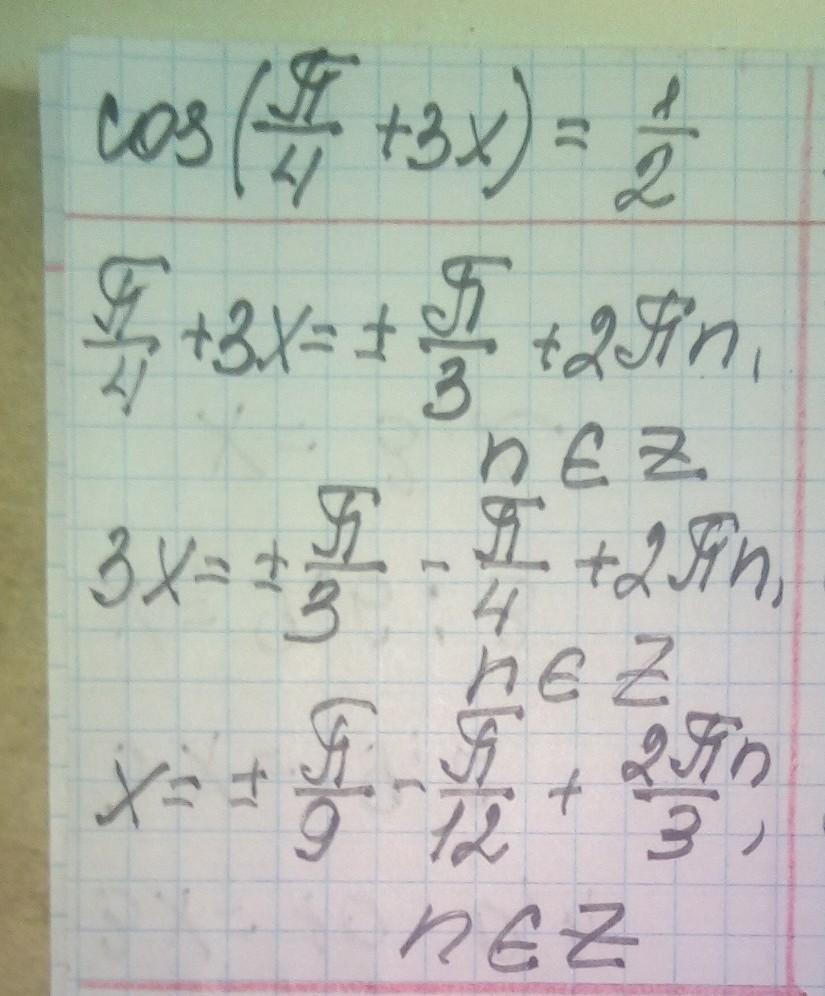 cos(π/4 + 3x) = 1/2
π/4 + 3x = ± π/3 + 2πn,
n ∈ Z
3x = ± π/3 - π/4 + 2πn,
n ∈ Z
x = ± π/9 - π/12 + 2πn/3,
n ∈ Z